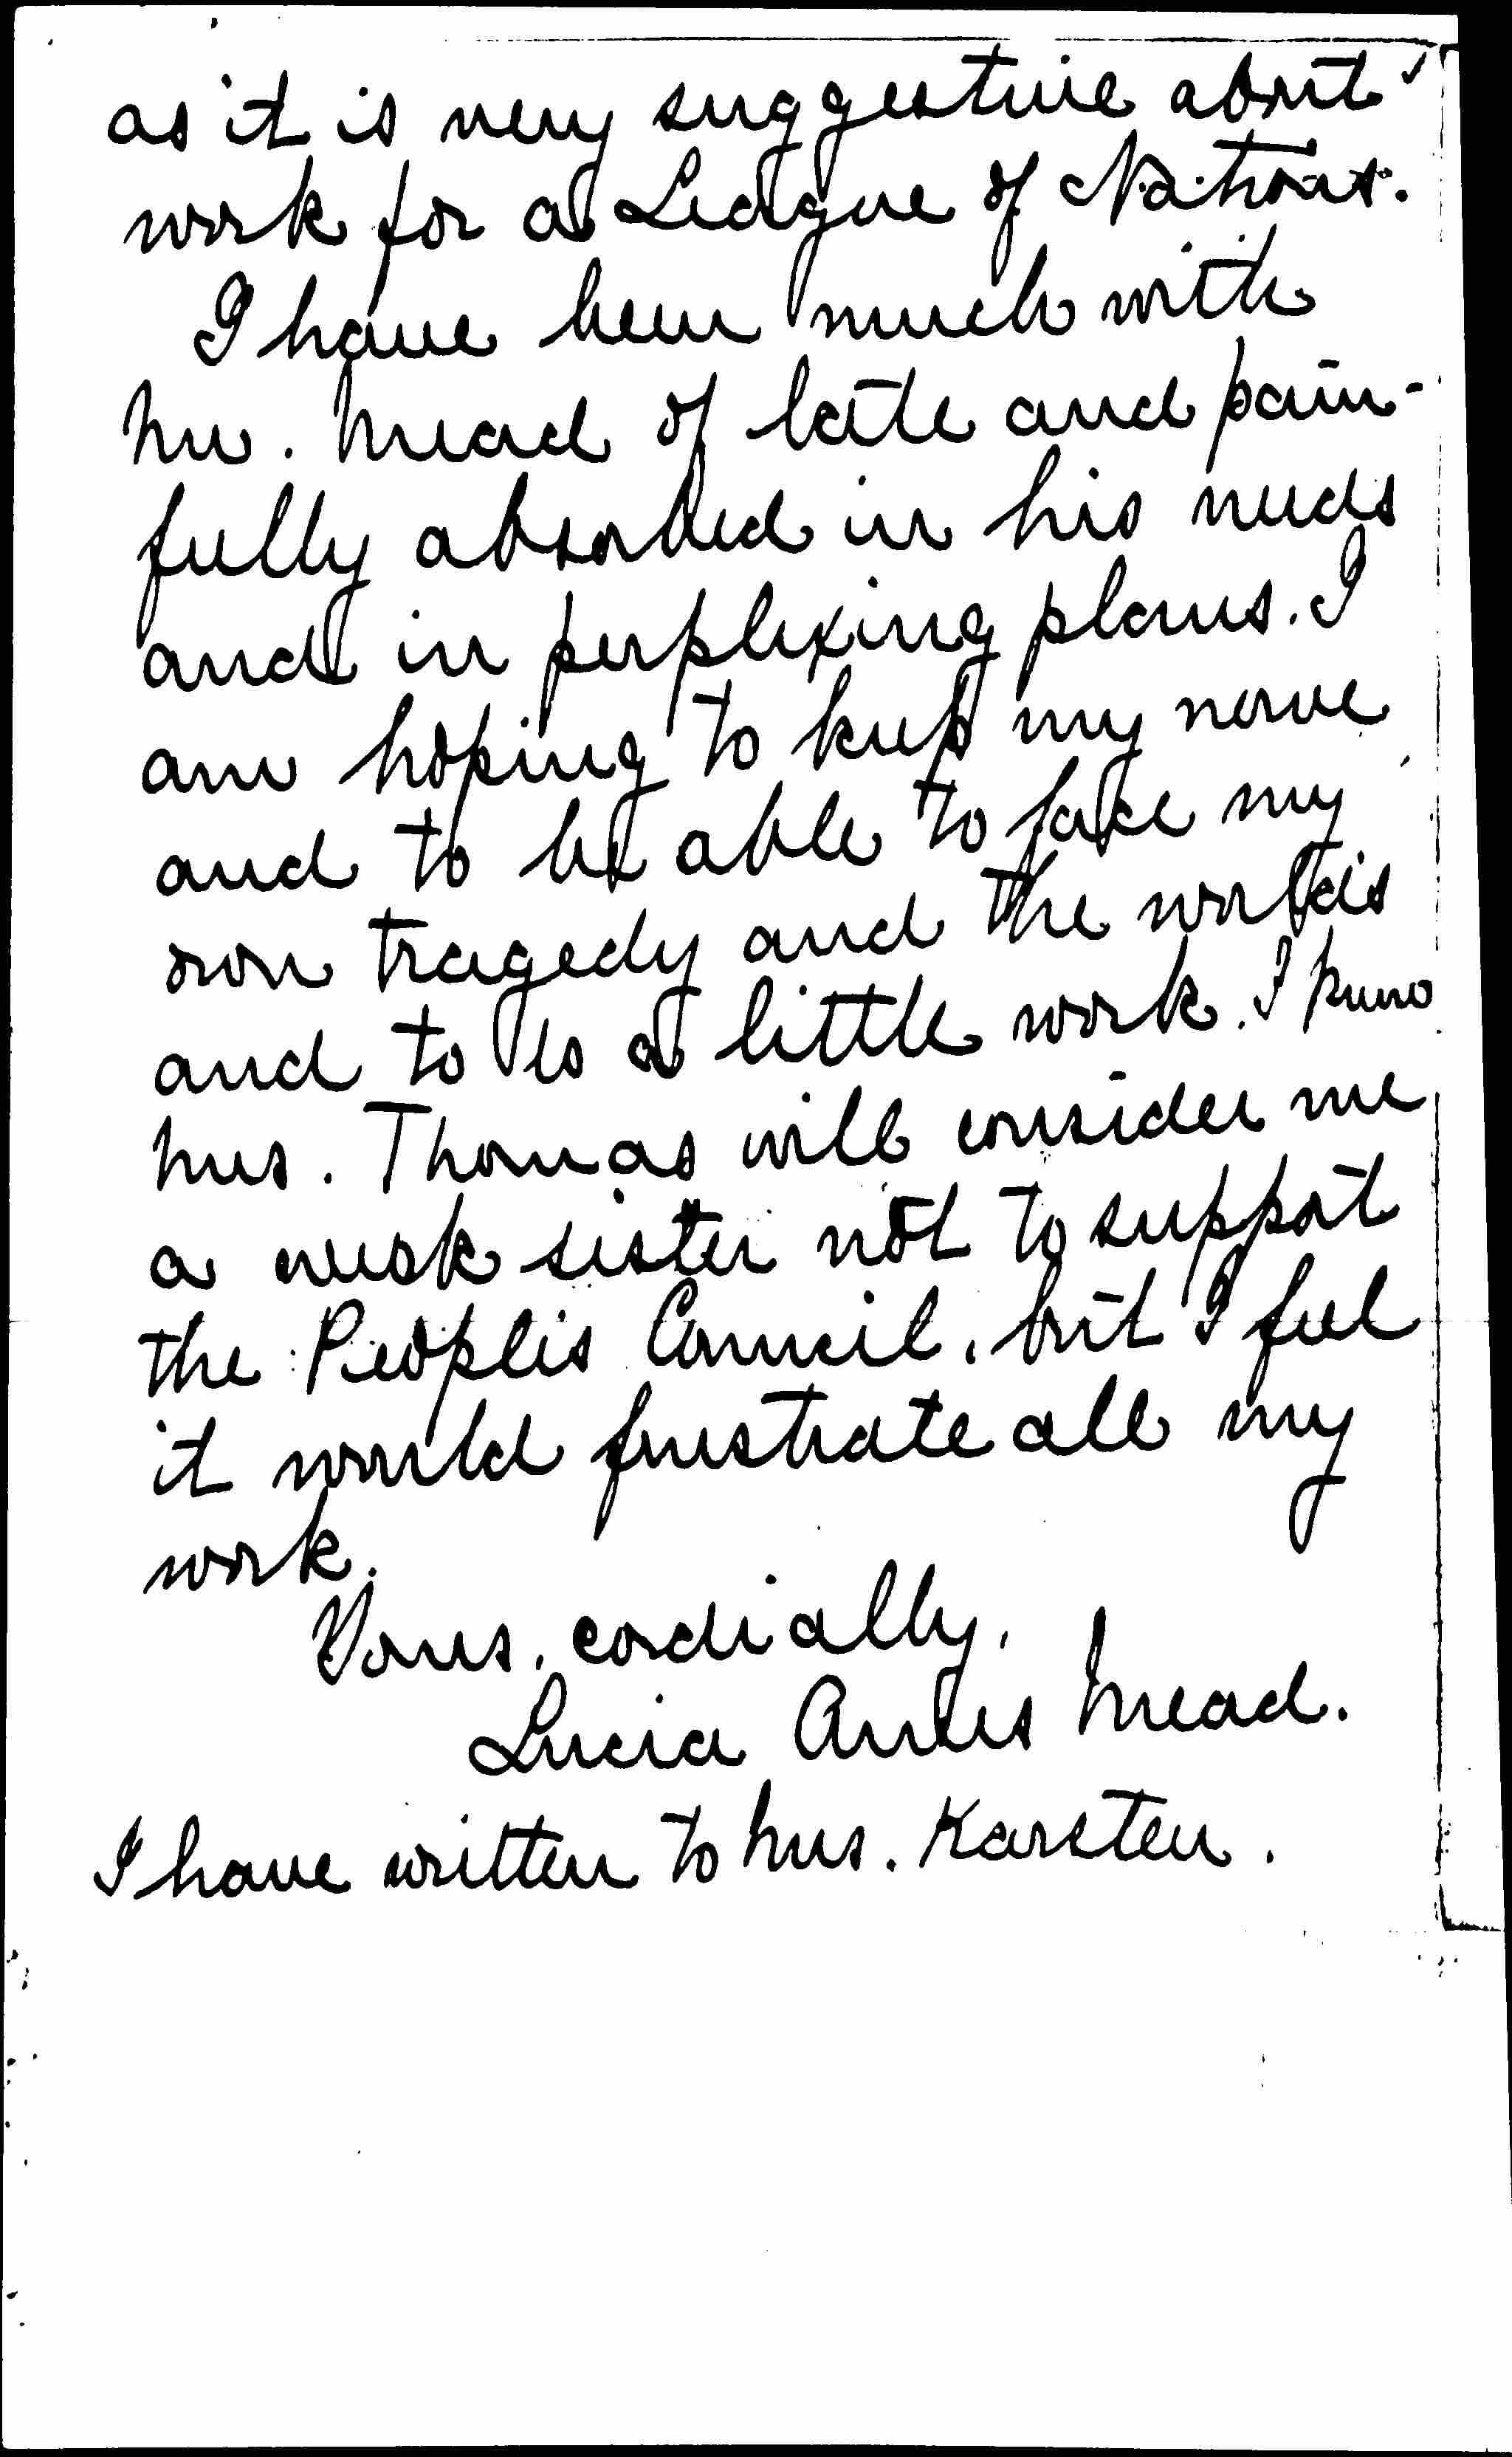 as it is very suggestive about
work for a League of Nations.
I have been much with
Mr. Mead of late and pain-
fully absorbed in his needs
and in perplexing plans. I
am hoping to keep my nerve
and to be able to face my
own tragedy and the world's
and to do a little work. I know
Mrs. Thomas will consider me
a weak sister not to support
the People's Council, but I feel
it would frustrate all my
work.
Yours, cordially,
Lucia Ames Mead.
I have written to Mrs. Karsten.